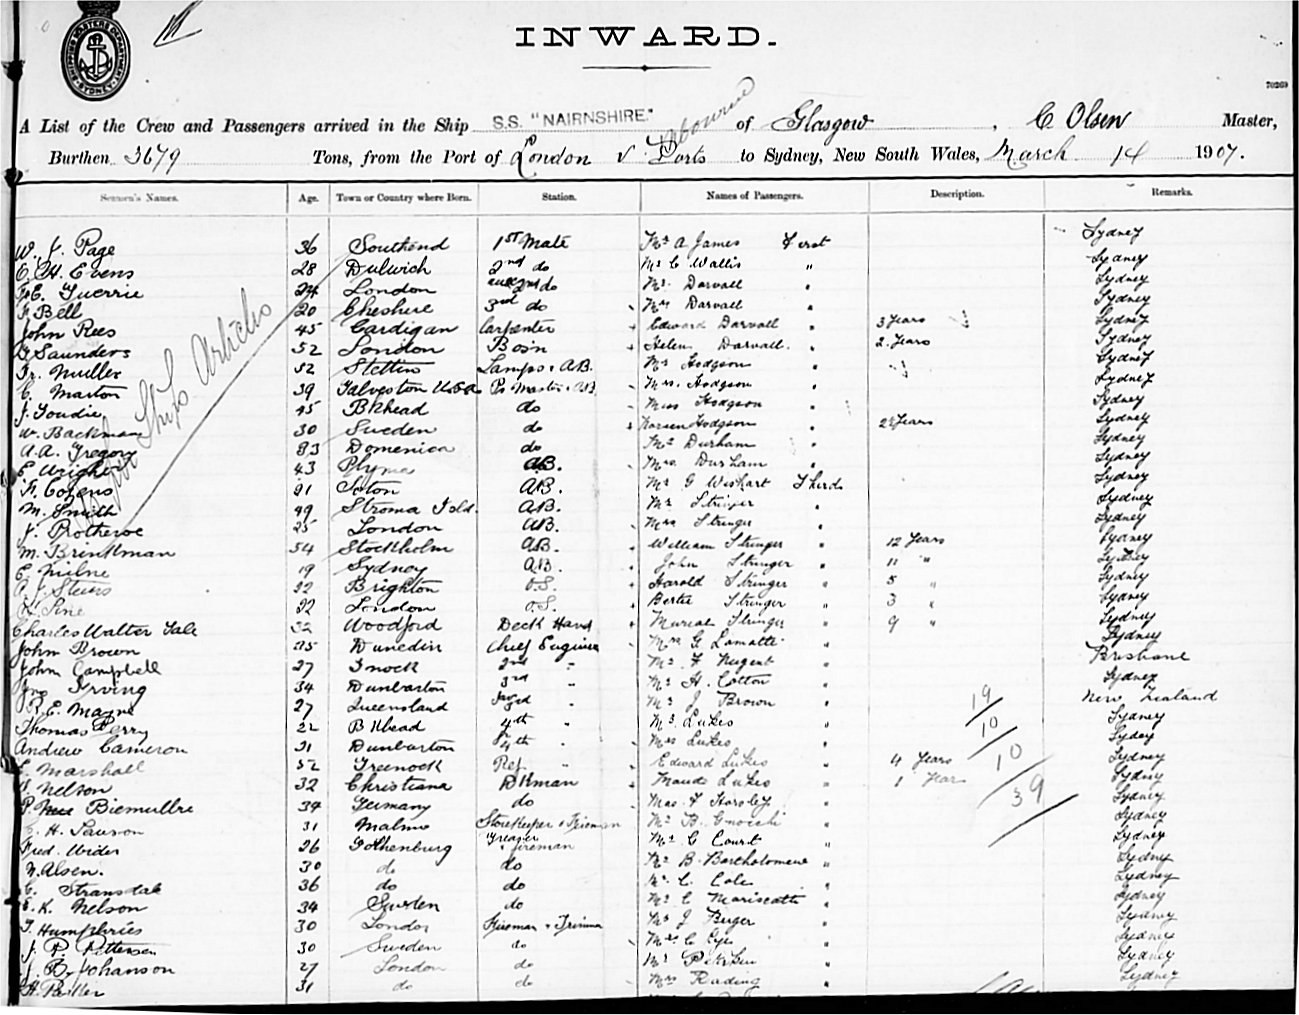 SHIPPING MASTERS DEPARTMENT SYDNEY
INWARD.
70269
A List of the Crew and Passengers arrived in the Ship S.S. "NAIRNSHIRE" of Glasgow, C Olsen Master,
Burthen 3679 Tons, from the Port of London Ports to Sydney, New South Wales, March 14 1907.
Seamen's Names. Age. Town or Country where Born. Station. Names of Passengers. Description. Remarks.
W. J. Page 36 Southend 1st Mate Mr A James First Sydney
28 Dulwich 2nd do Mr C Wallis " Sydney
Guerrie 24 London 2nd do Mr Darvall " Sydney
Bell 20 Cheshire 3rd do Mrs Darvall " Sydney
John Rees 45 Cardigan Carpenter Edward Darvall " 3 Years Sydney
Saunders 52 London Bosn Helen Darvall " 2 Years Sydney
Fr. Muller 52 Stettin Lamps & A.B. Mr Hodgson " Sydney
C. Marton 39 Galveston U.S.A. Mrs. Hodgson " Sydney
J. Goudie 45 B'khead do Miss Hodgson " Sydney
W. Backman 30 Sweden do Hodgson " Sydney
A.A. Gregory Domenica do Mr Durham Sydney
E Wright 43 AB. Mrs Durham " Sydney
Cozens 21 Soton AB. Mr G Wishart Third Sydney
M. Smith 49 Stroma Isld. AB. Mr Stringer " Sydney
J. Protheroe 25 London AB. Mrs Stringer Sydney
M. Brinkman 54 Stockholm AB. William Stringer " 12 Years Sydney
E. Milne 19 Sydney AB. John Stringer " 11 " Sydney
22 Brighton O.S. Harold Stringer " 5 " Sydney
22 London O.S. Bertie Stringer " 3 " Sydney
Charles Walter Sale 32 Woodford Deck Hand Muriel Stringer " 9 " Sydney
John Brown Dunedin Chief Engineer Mrs G Lamatte Sydney
John Campbell 27 2nd " Mr F Nugent " Brisbane
Jno Irving 34 Dunbarton 3rd " Mr H. Cotton " Sydney
R. E. Mayne 27 Queensland " Mr J Brown " New Zealand
Thomas Perry 22 B'khead 4th " Mr Lukes " Sydney
Andrew Cameron 31 Dunbarton 4th " Mrs Lukes " Sydney
Marshall 52 Greenock Ref. " Edward Lukes " 4 Years Sydney
Nelson 32 Christiana Dkman Maude Lukes " 1 Year Sydney
P. Biemullre 34 Germany do Mrs F Horsley " Sydney
31 Malmo Storekeeper & Fireman Mr B. Gnocchi " Sydney
Fred. Wider 26 Gothenburg Greaser & fireman Mr C Court " Sydney
N. Alsen. 30 do do Mr B Bartholomew " Sydney
C. Stransdale 36 do do Mr C. Cole " Sydney
E. K. Nelson 34 Sweden do Mr C Mariscatti " Sydney
T. Humphries 30 London Fireman & Trimmer Mr J Berger " Sydney
J. P. Petterson 30 Sweden do Mr C Eye " Sydney
J. B. Johanson 27 London do Mr " Sydney
31 do do Mrs Rading " Sydney
Ships Articles
19
10
10
39